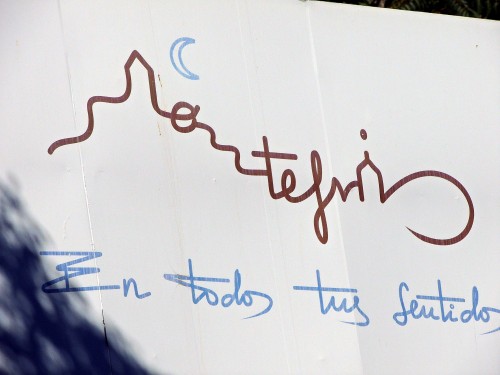 Montefrio
En todos tus sentidos